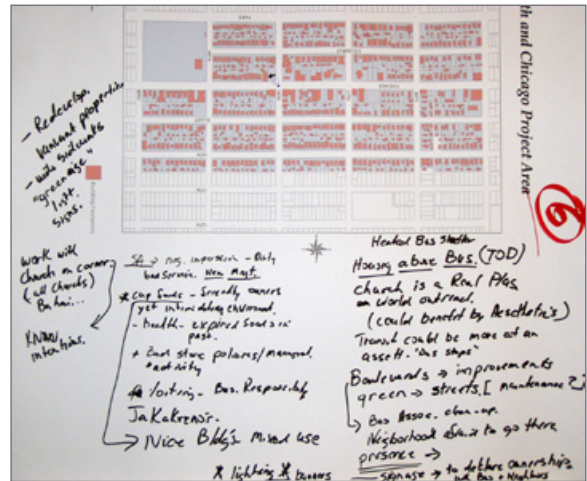 th and Chicago Project Area
6
Building Footprints
- Redevelop.
Vacant properties
- wide sidewalks
"greenage"
light
signs.
Work with
Church on corner.
(all churchs)
Know
intentions.
neg. impression - Only
bus service. New Mgmt.
friendly owners
yet intimidating environment.
- Health - expired food in
past.
+ End store policies/manage.
activity
loitering - Bus. Responsibility
→ Nice Bldg's Mixed use
* lighting * banners
Heated Bus Shelter
Housing above Bus. (TOD)
church is a Real Plus
on World outreach.
(could benefit by Aesthetic's)
Transit could be more of an
asset. "bus stops"
Boulevards → improvements
green → streets. [maintenance?]
→ Bus Assoc. clean-up.
Neighborhood afraid to go there
presence →
signage → to declare ownership
Bus + Neighbors